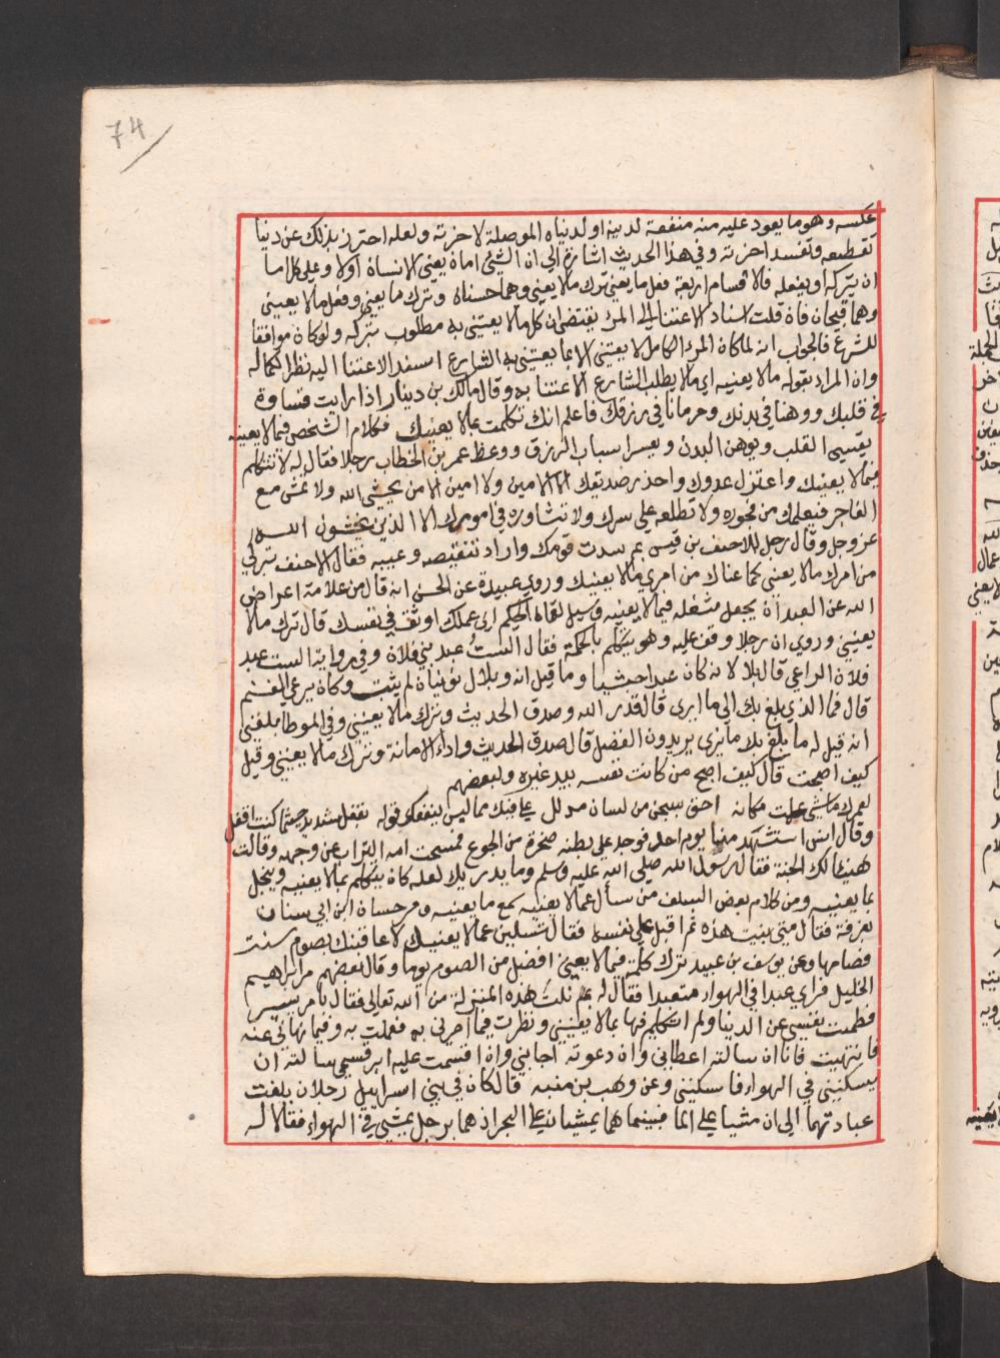 74
عكسه وهو ما يعود عليه منه منفعة لدينه او لدنياه الموصلة لاخرته ولعله احترز بذلك عن دنيا
تقطعه وتفسد اخرته وفي هذا الحديث اشارة الى ان الشئ اما ان يعني الانسان اولا وعلى كل اما
ان يتركه او يفعله فالاقسام اربعة فعل ما يعني ترك مالا يعني وهما حسنان وترك ما يعني وفعل مالا يعيني
وهما قبيحان فان قلت اسناد الاعتنا الى المرء يقتضي ان كل مالا يعتني به مطلوب تركه ولو كان موافقا
للشرع فالجواب انه لما كان المرء الكامل لا يعتني الا بما يعتني به الشارع اسند الاعتنا اليه نظرا لكماله
وان المراد بقوله مالا يعنيه اي مالا يطلب الشارع الاعتنا به وقال مالك بن دينار اذا رايت قساوة
في قلبك ووهنا في بدنك وحرمانا في رزقك فاعلم انك تكلمت بمالا يعنيك فكلام الشخص فيما لا يعنيه
يقسي القلب ويوهن البدن ويعسر اسباب الرزق ووعظ عمر بن الخطاب رجلا فقال له لا تتكلم
فيما لا يعنيك واعتزل عدوك واحذر صديقك الا الامين ولا امين الا من يخشى الله ولا تمش مع
الفاجر فيعلمك من فجوره ولا تطلعه على سرك ولا تشاوره في امورك الا الذين يخشون الله
عز وجل وقال رجل للاحنف بن قيس بم سدت قومك واراد تنقيصه وعيبه فقال الاحنف بتركي
من امرك مالا يعنيني كما عناك من امري مالا يعنيك وروى عبيدة عن الحسن انه قال من علامة اعراض
الله عن العبد ان يجعل شغله فيما لا يعنيه وسيل لقمان الحكيم اي عملك اوثق في نفسك قال ترك مالا
يعنيني وروي ان رجلا وقف عليه وهو يتكلم بالحكمة فقال الست عبد بني فلان وفي رواية الست عبد
فلان الراعي قال بلا لانه كان عبدا حبشيا وما قيل انه وبلال نوبيان لم يثبت وكان يرعى الغنم
قال فما الذي بلغ بك الى ما ارى قال قدر الله وصدق الحديث وترك مالا يعنيني وفي الموطا بلغني
انه قيل له ما بلغ بك ما نرى يريدون الفضل قال صدق الحديث واداء الامانة وترك مالا يعنيني وقيل
كيف اصبحت قال كيف اصبح من كانت نفسه بيد غيره ولبعضهم
لعمرك ما شي علمت مكانه احق بسجن من لسان مدلل على فيك مما ليس يعنيك قوله بقفل شديد حيثما كنت اقفل
وقال انس استشهد منا يوم احد فوجد على بطنه صخرة من الجوع فمسحت امه التراب عن وجهه وقالت
هنيئا لك الجنة فقال رسول الله صلى الله عليه وسلم وما يدريك لعله كان يتكلم بمالا يعنيه ويبخل
بما يعنيه ومن كلام بعض السلف من سأل عمالا يعنيه سمع ما يعنيه ومر حسان ابن ابي سنان
بغرفة فقال متى بنيت هذه ثم اقبل على نفسه فقال تسئلين عمالا يعنيك لاعاقبنك بصوم سنة
فصامها وعن يوسف بن عبيد ترك كلمة فيما لا يعني افضل من الصوم يوما وقال بعضهم مر ابراهيم
الخليل فراى عبدا في الهواء متعبدا فقال له بم نلت هذه المنزلة من الله تعالى فقال بامر يسير
فطمت نفسي عن الدنيا ولم اتكلم فيها بمالا يعنيني ونظرت فيما امرني به فعملت به وفيما نهاني عنه
فانتهيت فانا ان سالته اعطاني وان دعوته اجابني وان اقسمت عليه ابر قسمي سالته ان
يسكنني في الهواء فاسكنني وعن وهب بن منبه قال كان في بني اسراييل رجلان بلغت
عبادتهما الى ان مشيا على الما فبينما هما يمشيان على البحر اذ هما برجل يمشي في الهواء فقالا له